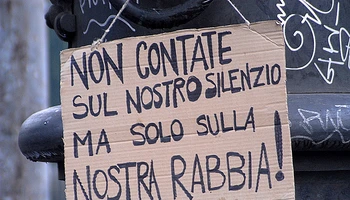 NON CONTATE
SUL NOSTRO SILENZIO
MA SOLO SULLA
NOSTRA RABBIA!